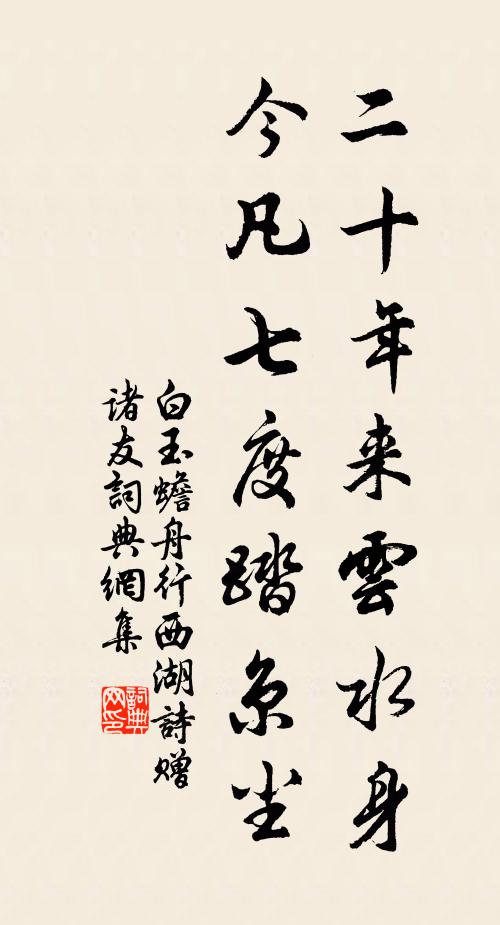 二十年来雲水身
今凡七度踏京尘
白玉蟾舟行西湖詩赠
諸友詞典網集
詞典网印